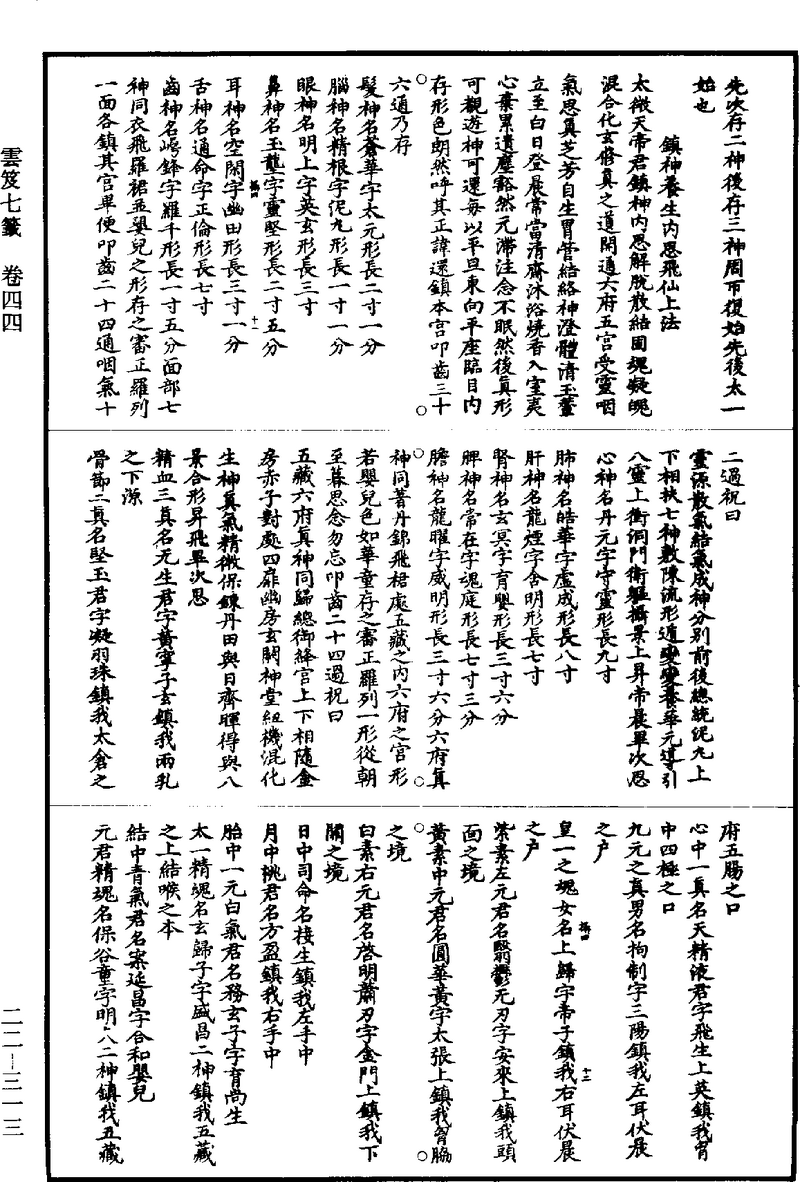 先次存二神後存三神周帀復始先後太一
始也
鎮神養生內思飛仙上法
太微天帝君鎮神內思解脫散結固魂凝魄
混合化玄修真之道開通六府五宮受靈咽
氣思真芝芳自生胃管結絡神澄體清玉藿
立至白日登晨常當清齋沐浴燒香入室夷
心棄累遺塵豁然元滯注念不眠然後真形
可觀遊神可還每以平旦東向平座臨目內
存形色朗然呼其正諱還鎮本宮叩齒三十
六通乃存
髮神名蒼華字太元形長二寸一分
腦神名精根字泥丸形長一寸一分
眼神名明上字英玄形長三寸
鼻神名玉壟字靈堅形長二寸五分
耳神名空閑字幽田形長三寸一分
舌神名通命字正倫形長七寸
齒神名崿鋒字羅千形長一寸五分面部七
神同衣飛羅裙並嬰兒之形存之審正羅列
一面各鎮其宮畢便叩齒二十四通咽氣十
二過祝曰
靈源散氣結氣成神分別前後總統泥丸上
下相扶七神敷陳流形遁變變養華元導引
八靈上衝洞門衛軀攝景上昇帝晨畢次思
心神名丹元字守靈形長九寸
肺神名皓華字虛成形長八寸
肝神名龍煙字含明形長七寸
腎神名玄冥字育嬰形長三寸六分
脾神名常在字魂庭形長七寸三分
膽神名龍曜字威明形長三寸六分六府真
神同著丹錦飛裙處五藏之內六府之宮形
若嬰兒色如華童存之審正羅列一形從朝
至暮思念勿忘叩齒二十四過祝曰
五藏六府真神同歸總御絳宮上下相隨金
房赤子對處四扉幽房玄闕神堂紐機混化
生神真氣精微保鍊丹田與日齊暉得與八
景合形昇飛畢次思
精血三真名元生君字黃寧子玄鎮我兩乳
之下源
骨節二真名堅玉君字凝羽珠鎮我太倉之
府五腸之口
心中一真名天精液君字飛生上英鎮我胷
中四極之口
九元之真男名拘制字三陽鎮我左耳伏晨
之户
皇一之魂女名上歸字帝子鎮我右耳伏晨
之户
紫素左元君名翳鬱无刃字安來上鎮我頭
面之境
黃素中元君名圓華黃字太張上鎮我胷脇
之境
白素右元君名啓明蕭刃字金門上鎮我下
關之境
日中司命名接生鎮我左手中
月中桃君名方盈鎮我右手中
胎中一元白氣君名務玄子字育尚生
太一精魂名玄歸子字盛昌二神鎮我五藏
之上結喉之本
結中青氣君名案延昌字合和嬰兒
元君精魂名保谷童字明夫二神鎮我五藏
雲笈七籤　卷四四
二二—三一三